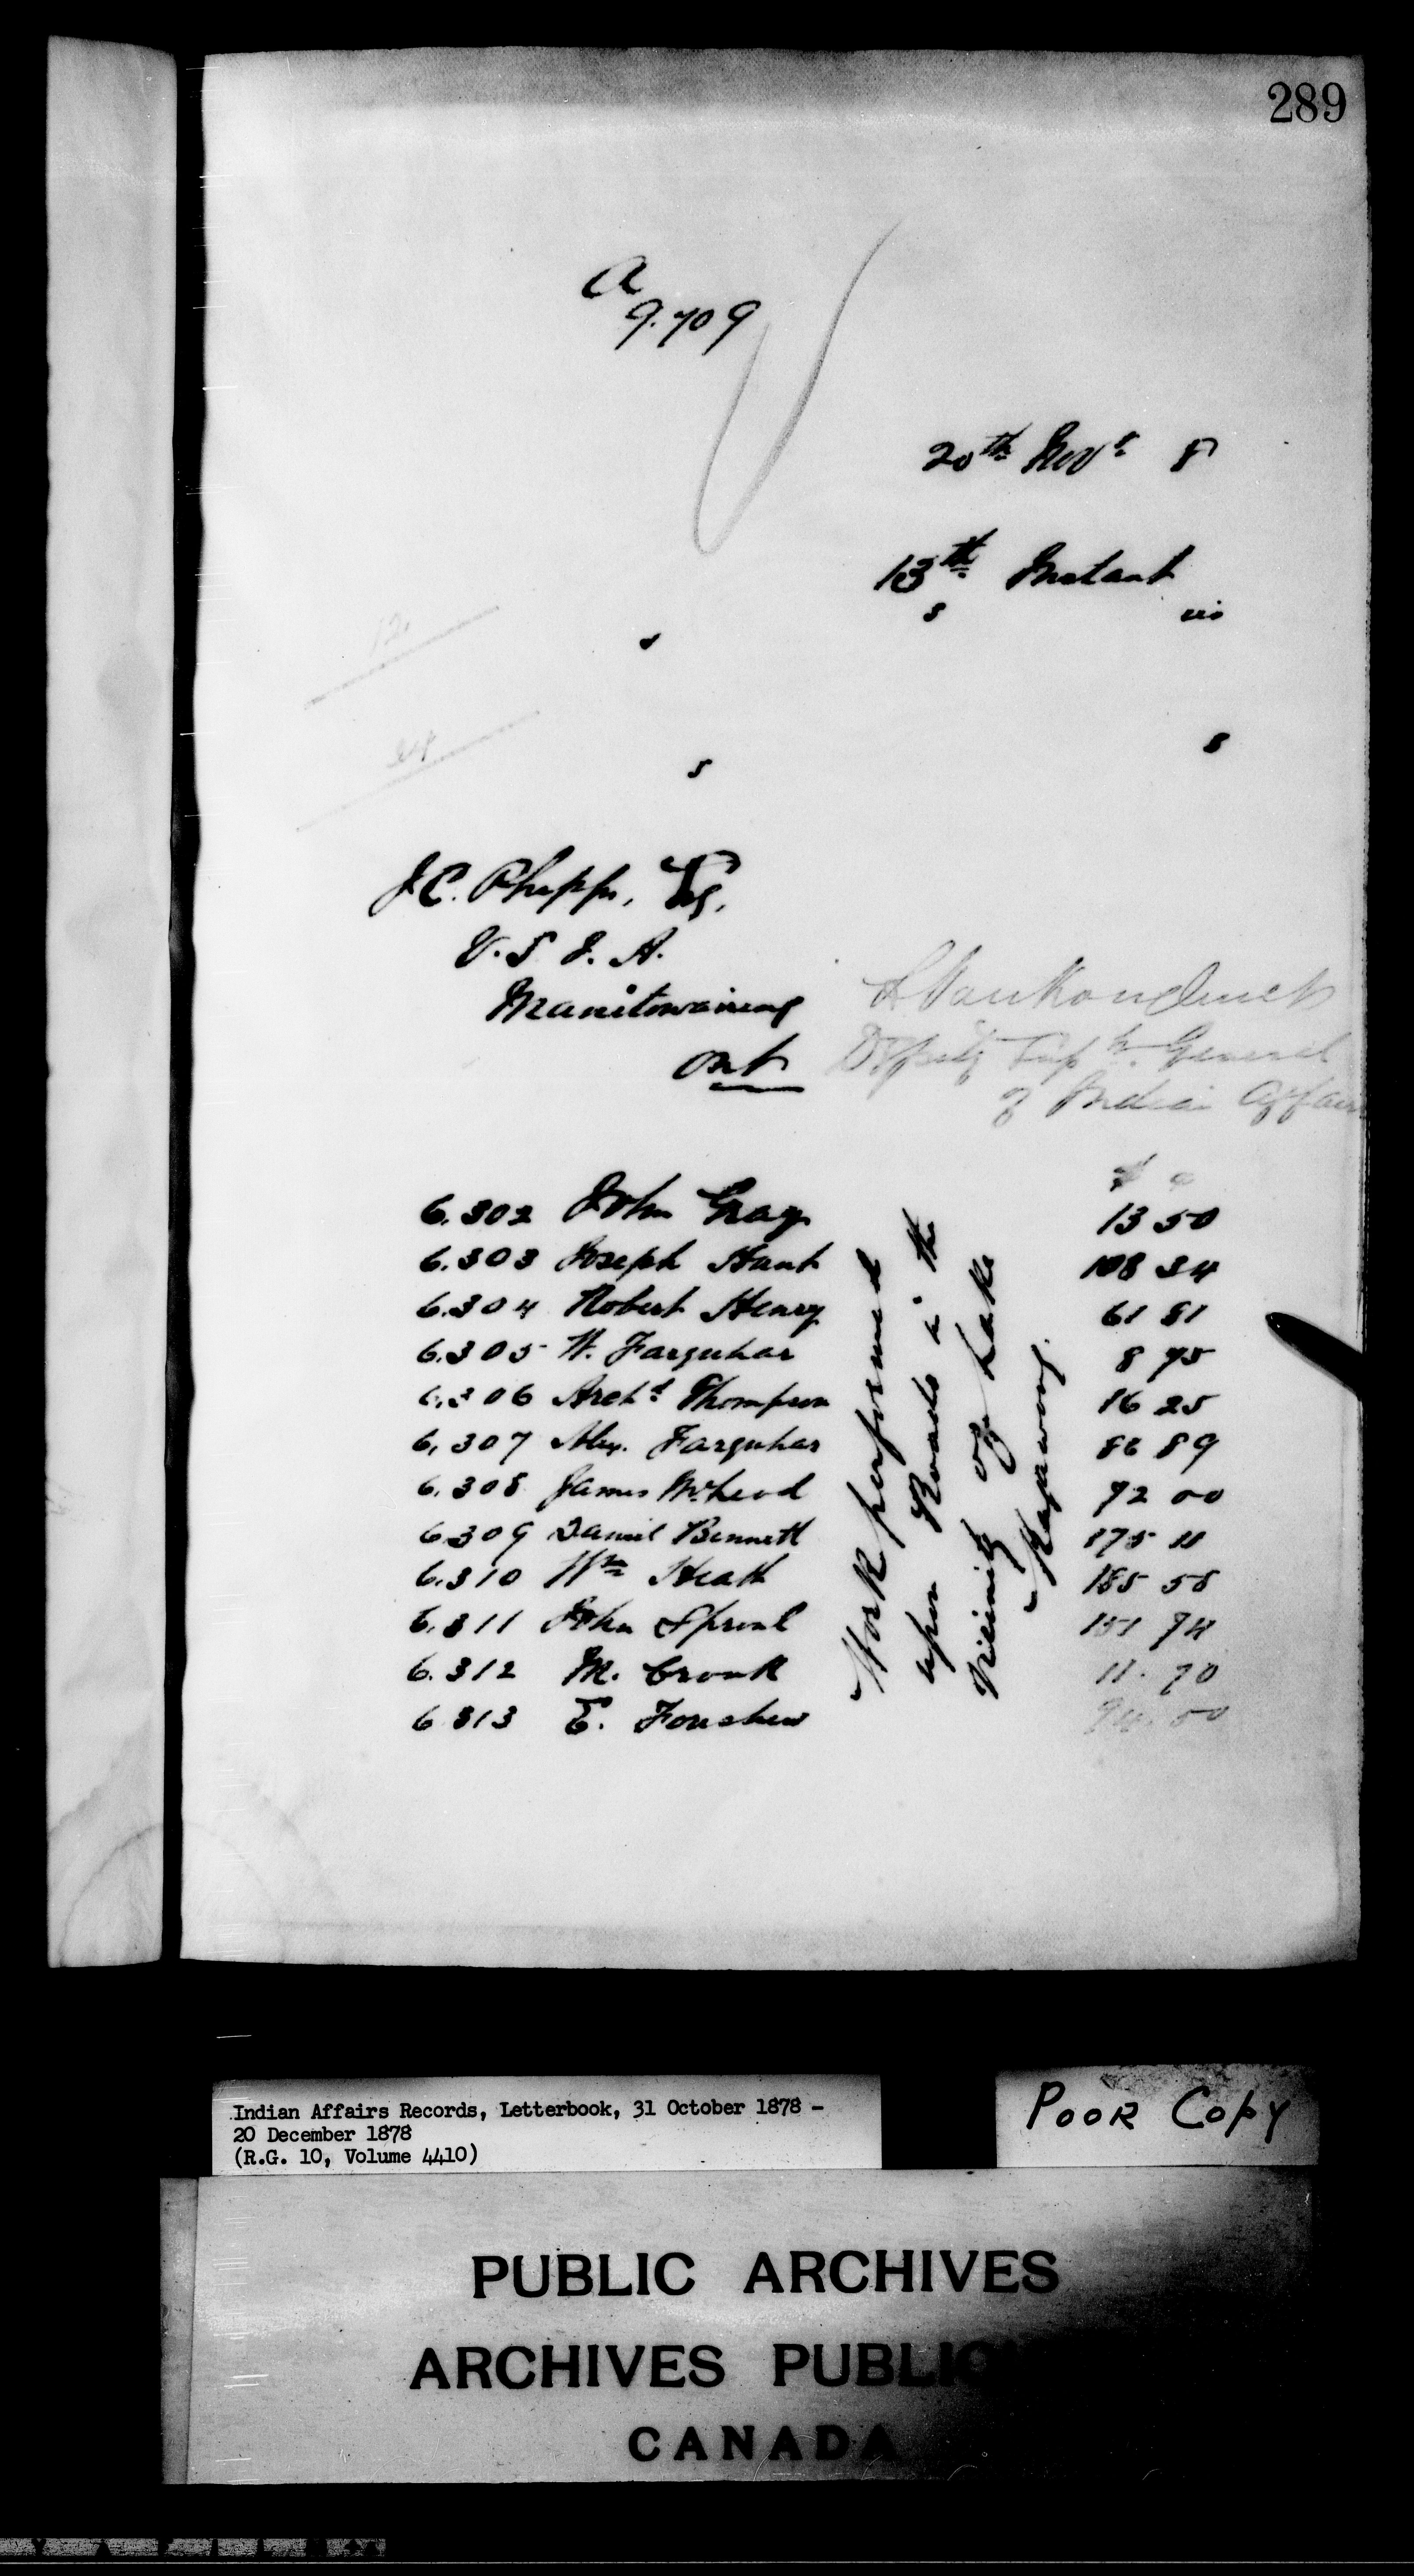 289
A
9.709
20th Novr 8
13th Instant
s
s
12
24
s
s
J.C. Phipps, Esq.
V. S I. A.
Manitowaning
Ont
L VanKoughnet
Deputy Supt. General
of Indian Affairs
$ c
6.302 John Gray 13 50
6.303 Joseph Hunt 108 34
6.304 Robert Henry 61 81
6.305 W. Farquhar 8 75
6.306 Archd Thompson 16 25
6.307 Alex. Farquhar 86 89
6.308 James McLeod 72 00
6.309 Daniel Bennett 175 11
6.310 Wm Heath 185 58
6.311 John Sproul 151 74
6.312 M. Cronk 11. 70
6.313 E. Foushew 94. 50
Work performed
upon Roads in the
Vicinity of Lake
Kagawong.
Indian Affairs Records, Letterbook, 31 October 1878 –
20 December 1878
(R.G. 10, Volume 4410)
Poor Copy
PUBLIC ARCHIVES
ARCHIVES PUBLIQ
CANADA